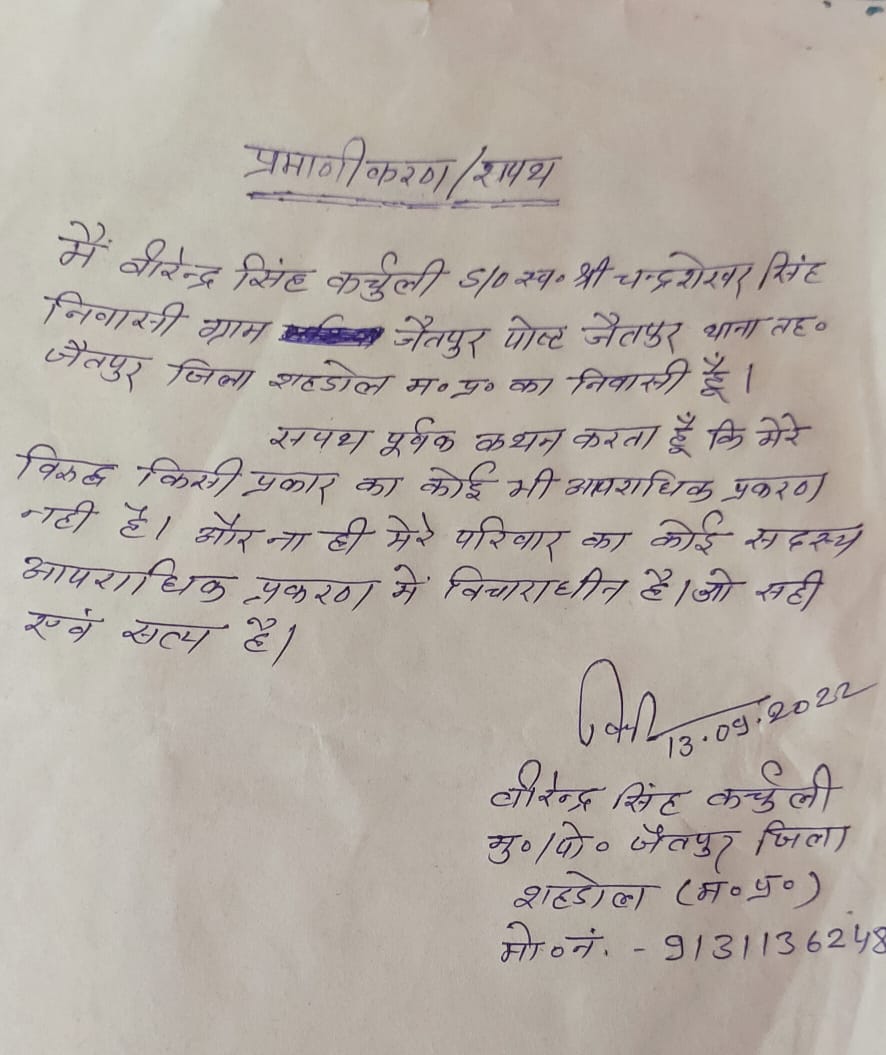 प्रमाणीकरण/शपथ
मैं वीरेन्द्र सिंह कर्चुली S/O स्व॰ श्री चन्द्रशेखर सिंह
निवासी ग्राम जैतपुर पोस्ट जैतपुर थाना तह॰
जैतपुर जिला शहडोल म॰ प्र॰ का निवासी हूँ।
सपथ पूर्वक कथन करता हूँ कि मेरे
विरुद्ध किसी प्रकार का कोई भी आपराधिक प्रकरण
नही है। और ना ही मेरे परिवार का कोई सदस्य
आपराधिक प्रकरण में विचाराधीन है। ओ सही
एवं सत्य है।
13.09.2022
वीरेन्द्र सिंह कर्चुली
मु॰/पो॰ जैतपुर जिला
शहडोल (म॰ प्र॰)
मो॰ नं. - 9131136248